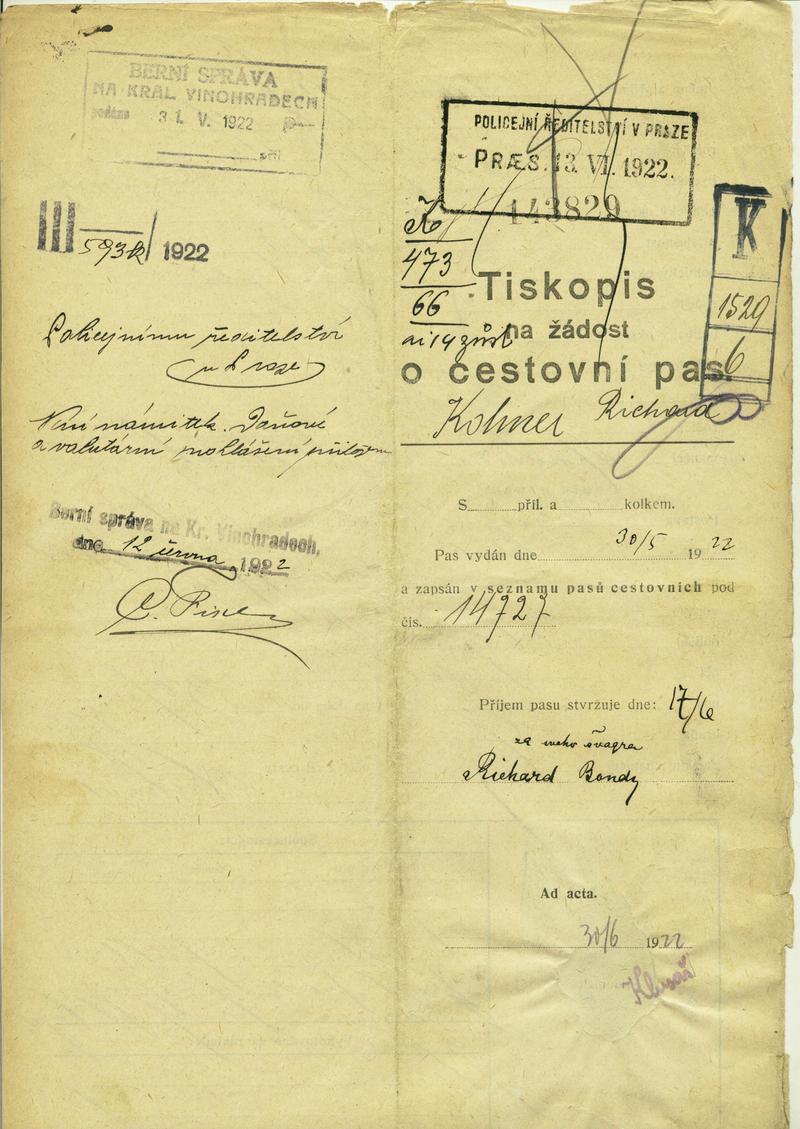 BERNÍ SPRÁVA
NA KRÁL. VINOHRADECH
podáno 31. V. 1922
příl.
III 593k/1922
Policejnímu ředitelství
v Praze
Není námitek. Daňové
a valutární prohlášení přiloženo
Berní správa na Kr. Vinohradech,
dne 12 června 1922
POLICEJNÍ ŘEDITELSTVÍ V PRAZE
PRÆS. 13. VI. 1922.
143829
K
1529
6
473
66
Tiskopis
na žádost
o cestovní pas.
Kohner Richard
S příl. a kolkem.
Pas vydán dne 30/5 1922
a zapsán v seznamu pasů cestovních pod
čís. 14727
Příjem pasu stvrzuje dne: 17/6
za mého švagra
Richard Bondy
Ad acta.
30/6 1922